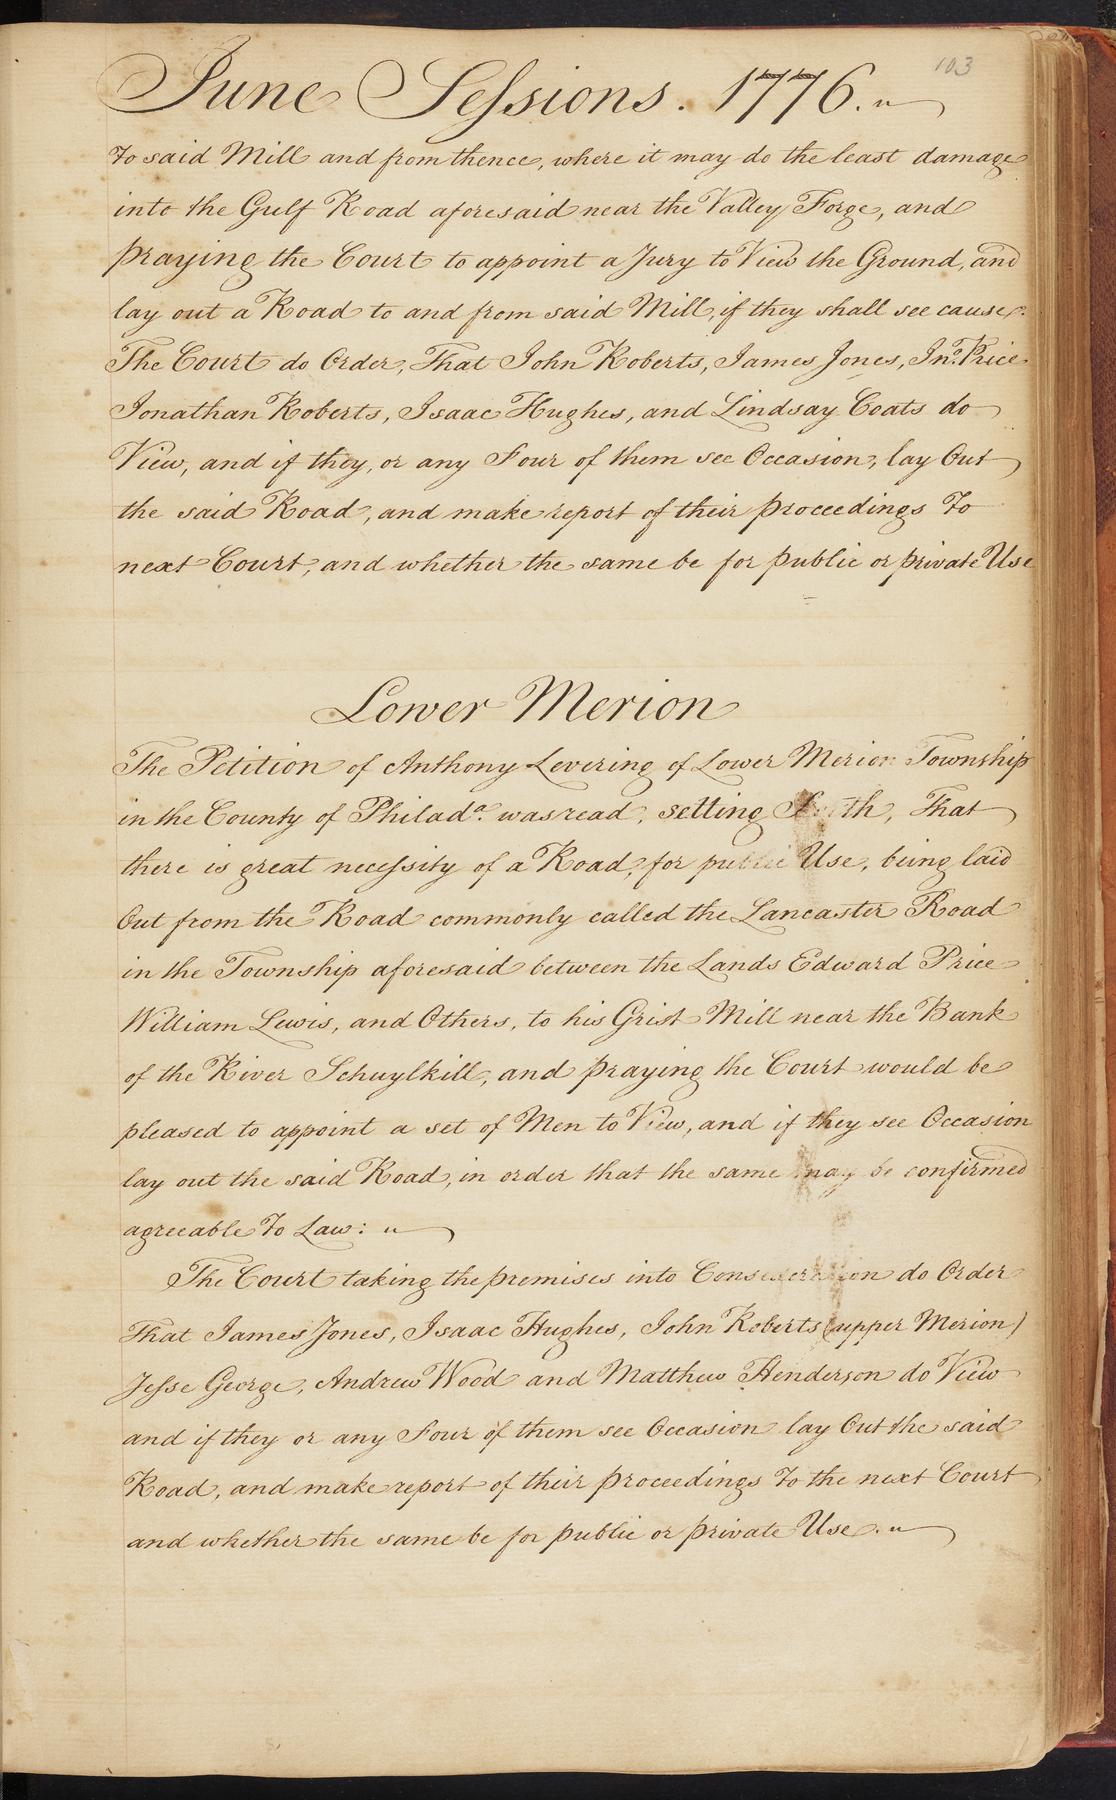 103
June Sessions. 1776.
To said Mill and from thence, where it may do the least damage
into the Gulf Road aforesaid near the Valley Forge, and
praying the Court to appoint a Jury to View the Ground, and
lay out a Road to and from said Mill, if they shall see cause.
The Court do Order, That John Roberts, James Jones, Jno. Price
Jonathan Roberts, Isaac Hughes, and Lindsay Coats do
View, and if they, or any Four of them see Occasion, lay Out
the said Road, and make report of their proceedings To
next Court, and whether the same be for public or private Use
Lower Merion
The Petition of Anthony Levering of Lower Merion Township
in the County of Philada. was read, setting Forth, That
there is great necessity of a Road, for public Use, being laid
Out from the Road commonly called the Lancaster Road
in the Township aforesaid between the Lands Edward Price
William Lewis, and Others, to his Grist Mill near the Bank
of the River Schuylkill, and praying the Court would be
pleased to appoint a set of Men to View, and if they see Occasion
lay out the said Road, in order that the same may be confirmed
agreeable To Law:
The Court taking the premises into Consideration do Order
That James Jones, Isaac Hughes, John Roberts (upper Merion)
Jesse George, Andrew Wood and Matthew Henderson do View
and if they or any Four of them see Occasion lay Out the said
Road, and make report of their proceedings To the next Court
and whether the same be for public or private Use.